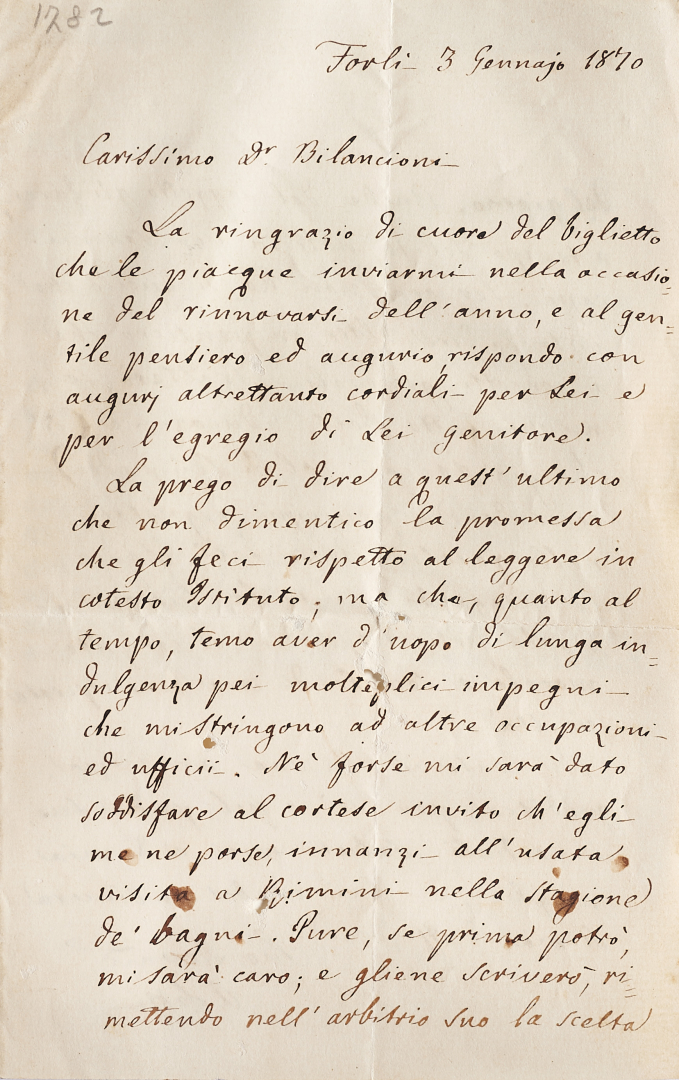 1282
Forlì 3 Gennajo 1870
Carissimo Dr. Bilancioni
La ringrazio di cuore del biglietto
che le piacque inviarmi nella occasio=
ne del rinnovarsi dell'anno, e al gen=
tile pensiero ed augurio, rispondo con
augurj altrettanto cordiali per Lei e
per l'egregio di Lei genitore.
La prego di dire a quest'ultimo
che non dimentico la promessa
che gli feci rispetto al leggere in
cotesto Istituto; ma che, quanto al
tempo, temo aver d'uopo di lunga in=
dulgenza pei molteplici impegni
che mi stringono ad altre occupazioni
ed ufficii. Nè forse mi sarà dato
soddisfare al cortese invito ch'egli
me ne porse, innanzi all'usata
visita a Rimini nella stagione
de' bagni. Pure, se prima potrò,
mi sarà caro; e gliene scriverò, ri=
mettendo nell'arbitrio suo la scelta